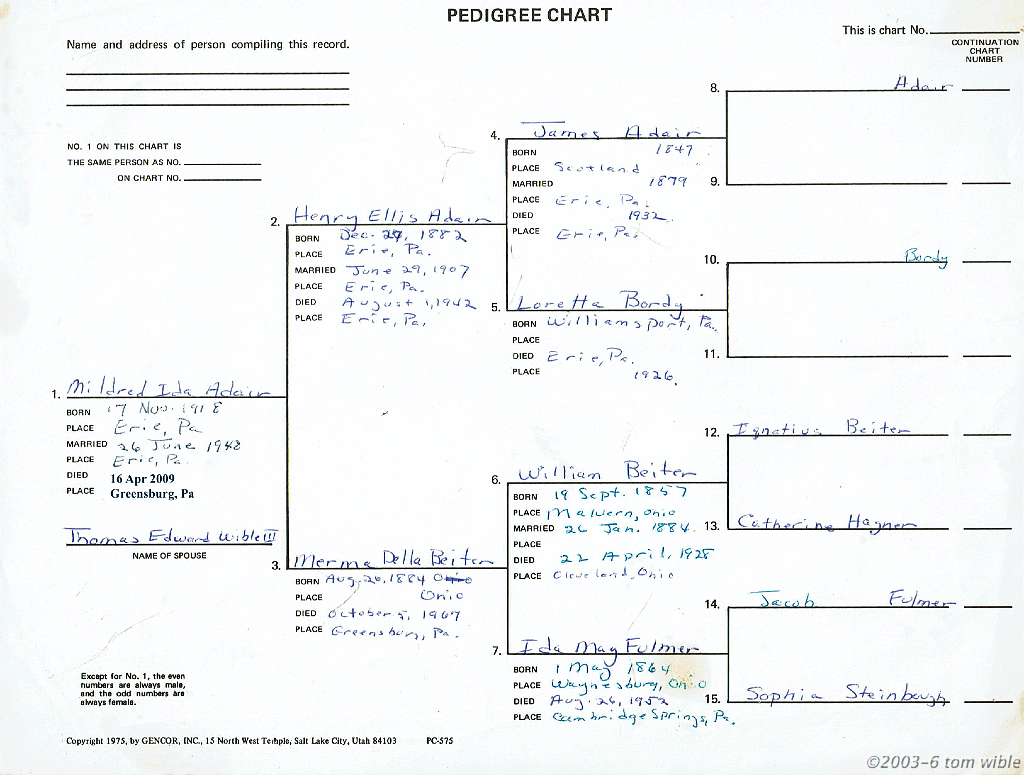 PEDIGREE CHART
This is chart No.
Name and address of person compiling this record.
CONTINUATION
CHART
NUMBER
NO. 1 ON THIS CHART IS
THE SAME PERSON AS NO.
ON CHART NO.
1. Mildred Ida Adair
BORN 17 Nov. 1918
PLACE Erie, Pa
MARRIED 26 June 1948
PLACE Erie, Pa.
DIED 16 Apr 2009
PLACE Greensburg, Pa
Thomas Edward Wible III
NAME OF SPOUSE
2. Henry Ellis Adair
BORN Dec. 27, 1882
PLACE Erie, Pa.
MARRIED June 29, 1907
PLACE Erie, Pa.
DIED August 1, 1942
PLACE Erie, Pa.
3. Merma Della Beiter
BORN Aug. 26, 1884 Ohio
PLACE Ohio
DIED October 5, 1967
PLACE Greensburg, Pa.
4. James Adair
BORN 1847
PLACE Scotland
MARRIED 1879
PLACE Erie, Pa.
DIED 1932
PLACE Erie, Pa.
5. Loretta Bordy
BORN Williamsport, Pa.
PLACE
DIED Erie, Pa.
PLACE 1926.
6. William Beiter
BORN 19 Sept. 1857
PLACE Malvern, Ohio
MARRIED 26 Jan. 1884
PLACE
DIED 22 April, 1928
PLACE Cleveland, Ohio
7. Ida May Fulmer
BORN 1 May 1864
PLACE Waynesburg, Ohio
DIED Aug. 26, 1952
PLACE Cambridge Springs, Pa.
8. Adair
9.
10. Bordy
11.
12. Ignatius Beiter
13. Catherine Hagner
14. Jacob Fulmer
15. Sophia Steinbaugh
Except for No. 1, the even
numbers are always male,
and the odd numbers are
always female.
Copyright 1975, by GENCOR, INC., 15 North West Temple, Salt Lake City, Utah 84103 PC-575
©2003-6 tom wible